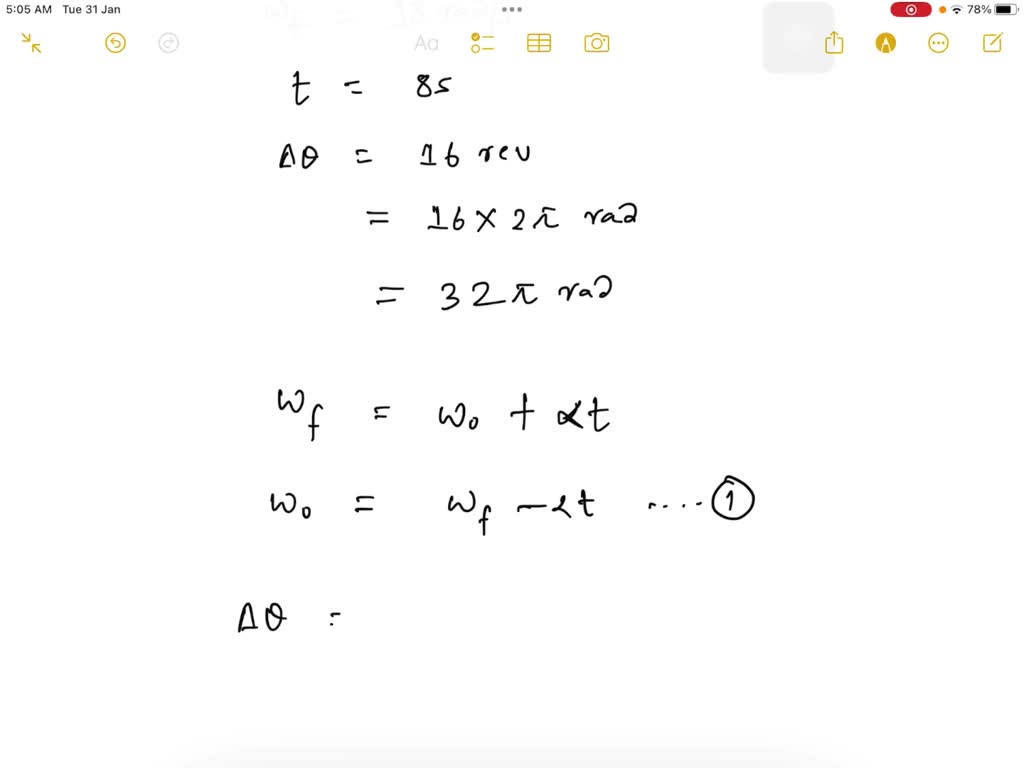 5:05 AM Tue 31 Jan
78%
ωf = 18 rad/s
Aa
t = 8s
Δθ = 16 rev
= 16 × 2π rad
= 32π rad
ωf = ω₀ + αt
ω₀ = ωf − αt ....①
Δθ =